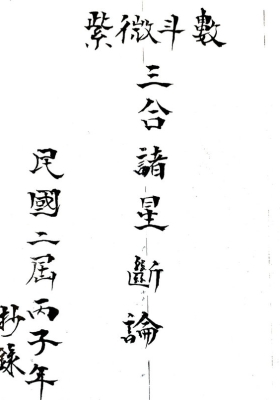 紫微斗數
三合諸星斷論
民國二屆丙子年
抄錄